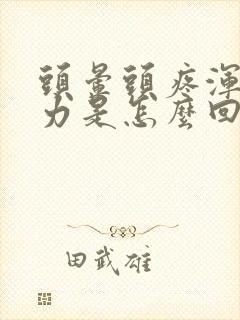 頭暈頭疼渾
力是怎麼回
田武雄